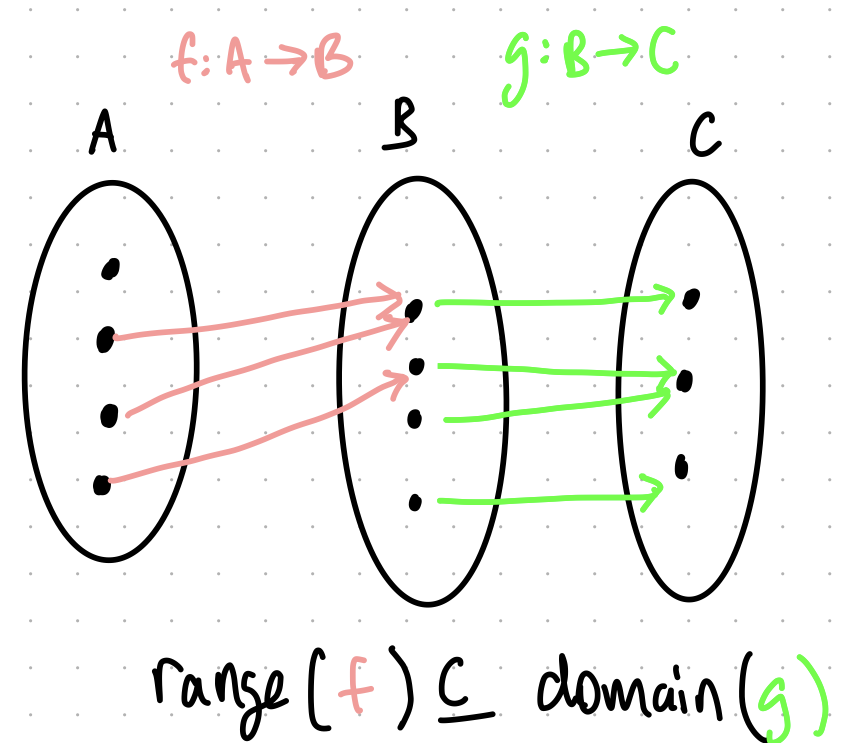 f: A → B g: B → C
A B C
range(f) ⊆ domain(g)